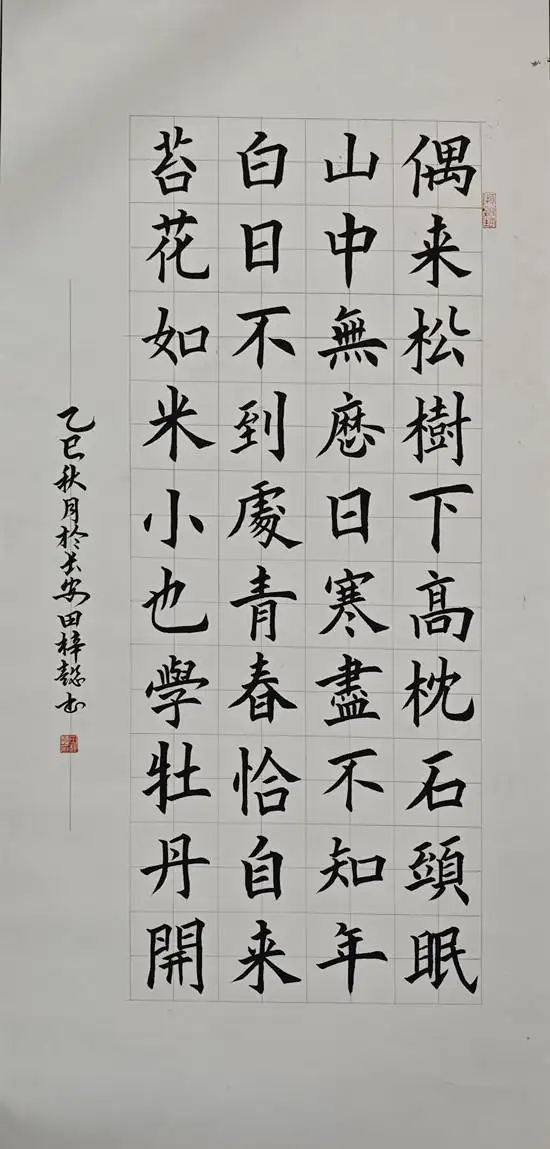 偶来松樹下高枕石頭眠
山中無曆日寒盡不知年
白日不到處青春恰自来
苔花如米小也學牡丹開
乙巳秋月於长安田梓懿书